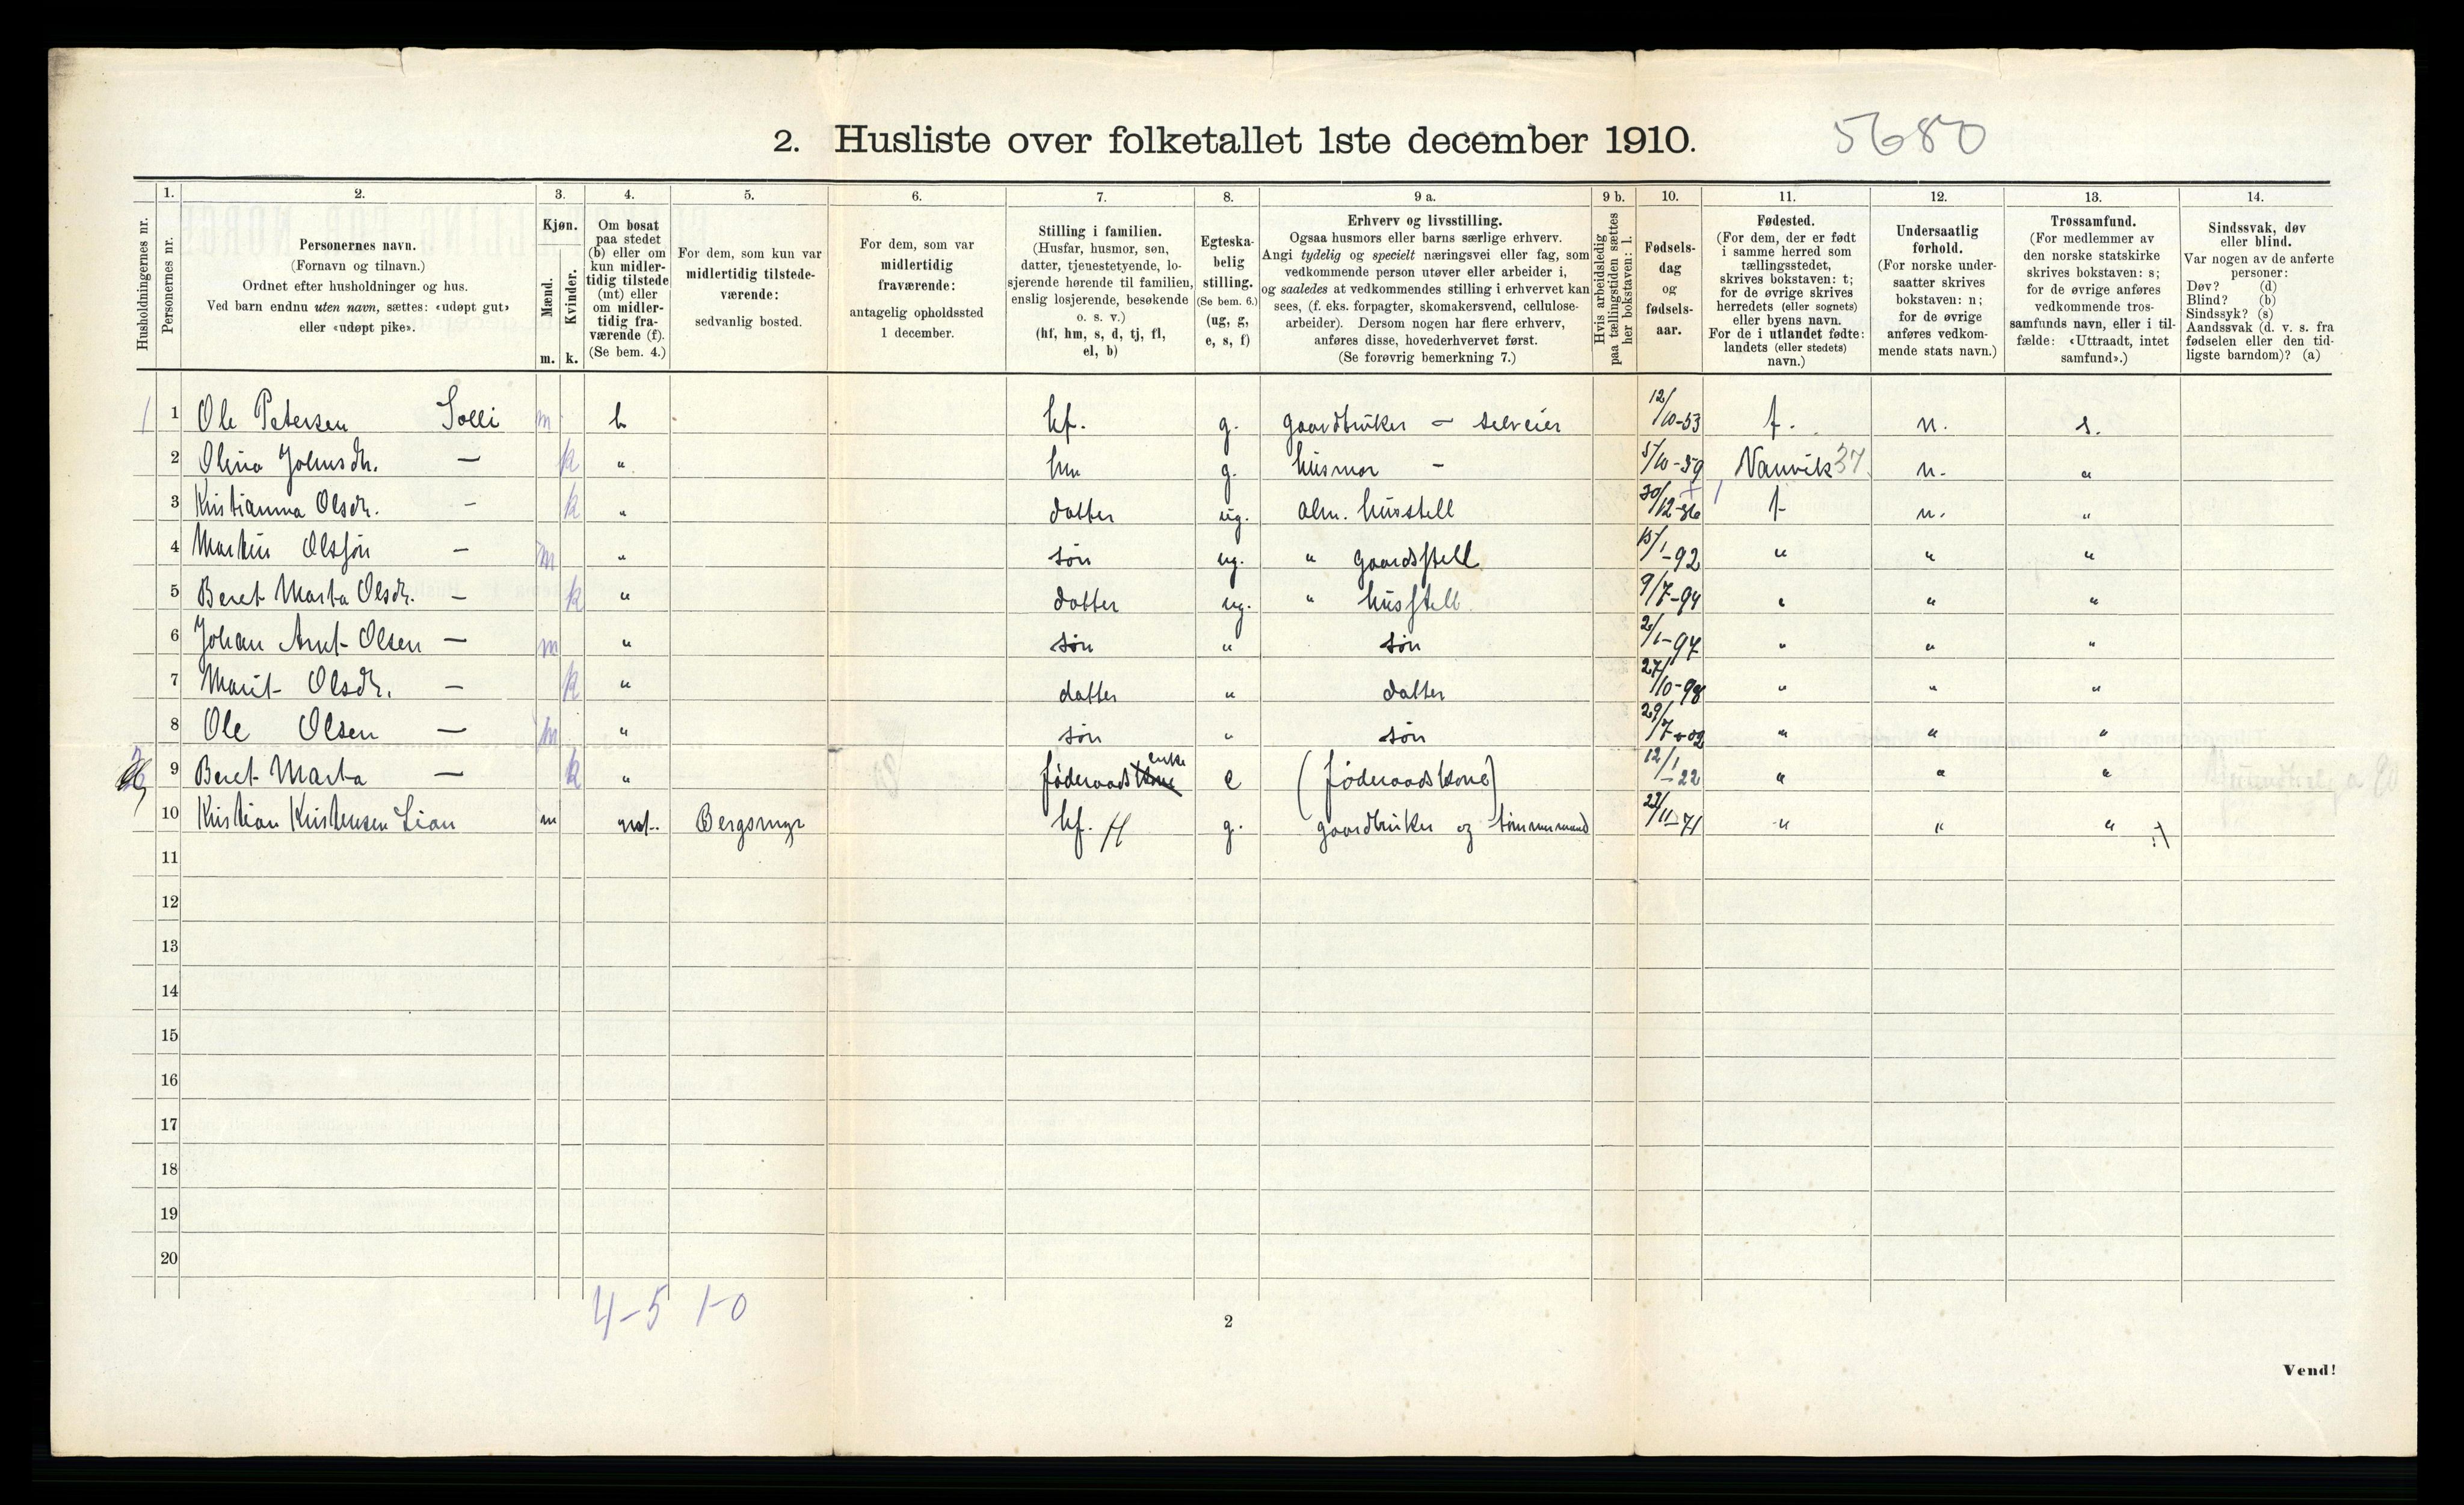 2. Husliste over folketallet 1ste december 1910. 5680
1. 2. 3. 4. 5. 6. 7. 8. 9 a. 9 b. 10. 11. 12. 13. 14.
Husholdningernes nr.
Personernes nr.
Personernes navn.
(Fornavn og tilnavn.)
Ordnet efter husholdninger og hus.
Ved barn endnu uten navn, sættes: «udøpt gut»
eller «udøpt pike».
Kjøn.
Mænd.
Kvinder.
m. k.
Om bosat
paa stedet
(b) eller om
kun midler-
tidig tilstede
(mt) eller
om midler-
tidig fra-
værende (f).
(Se bem. 4.)
For dem, som kun var
midlertidig tilstede-
værende:
sedvanlig bosted.
For dem, som var
midlertidig
fraværende:
antagelig opholdssted
1 december.
Stilling i familien.
(Husfar, husmor, søn,
datter, tjenestetyende, lo-
sjerende hørende til familien,
enslig losjerende, besøkende
o. s. v.)
(hf, hm, s, d, tj, fl,
el, b)
Egteska-
belig
stilling.
(Se bem. 6.)
(ug, g,
e, s, f)
Erhverv og livsstilling.
Ogsaa husmors eller barns særlige erhverv.
Angi tydelig og specielt næringsvei eller fag, som
vedkommende person utøver eller arbeider i,
og saaledes at vedkommendes stilling i erhvervet kan
sees, (f. eks. forpagter, skomakersvend, cellulose-
arbeider). Dersom nogen har flere erhverv,
anføres disse, hovederhvervet først.
(Se forøvrig bemerkning 7.)
Hvis arbeidsledig
paa tællingstiden sættes
her bokstaven: l.
Fødsels-
dag
og
fødsels-
aar.
Fødested.
(For dem, der er født
i samme herred som
tællingsstedet,
skrives bokstaven: t;
for de øvrige skrives
herredets (eller sognets)
eller byens navn.
For de i utlandet fødte:
landets (eller stedets)
navn.)
Undersaatlig
forhold.
(For norske under-
saatter skrives
bokstaven: n;
for de øvrige
anføres vedkom-
mende stats navn.)
Trossamfund.
(For medlemmer av
den norske statskirke
skrives bokstaven: s;
for de øvrige anføres
vedkommende tros-
samfunds navn, eller i til-
fælde: «Uttraadt, intet
samfund».)
Sindssvak, døv
eller blind.
Var nogen av de anførte
personer:
Døv? (d)
Blind? (b)
Sindssyk? (s)
Aandssvak (d. v. s. fra
fødselen eller den tid-
ligste barndom)? (a)
1 1 Ole Petersen Solli m b hf. g. gaardbruker - selveier 12/10-53 t. n. s.
2 Olina Johnsdtr. — k " hm g. husmor - 5/10-59 Nanvik 37 n. "
3 Kristianna Olsdtr. - k " datter ug. alm. husstell 30/12-86 t n. "
4 Martin Olssøn — m " søn ug. " gaardsstell 15/1-92 " " "
5 Beret Marta Olsdtr. — k " datter ug. " husstell 9/7-94 " " "
6 Johan Arnt Olsen — m " søn " søn 2/1-97 " " "
7 Marit Olsdtr. — k " datter " datter 27/10-98 " " "
8 Ole Olsen — m " søn " søn 29/7-02 " " "
2 9 Beret Marta — k " føderaadsenke e (føderaadskone) 12/1-22 " " "
10 Kristian Kristensen Lian m mt. Bergsmyr hf. H g. gaardbruker og tømmermand 22/11-71 " " "
11
12
13
14
15
16
17
18
19
20
4-5 1-0
2
Vend!